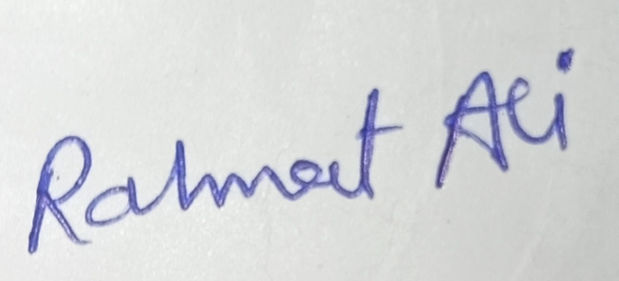 Rahmat Ali